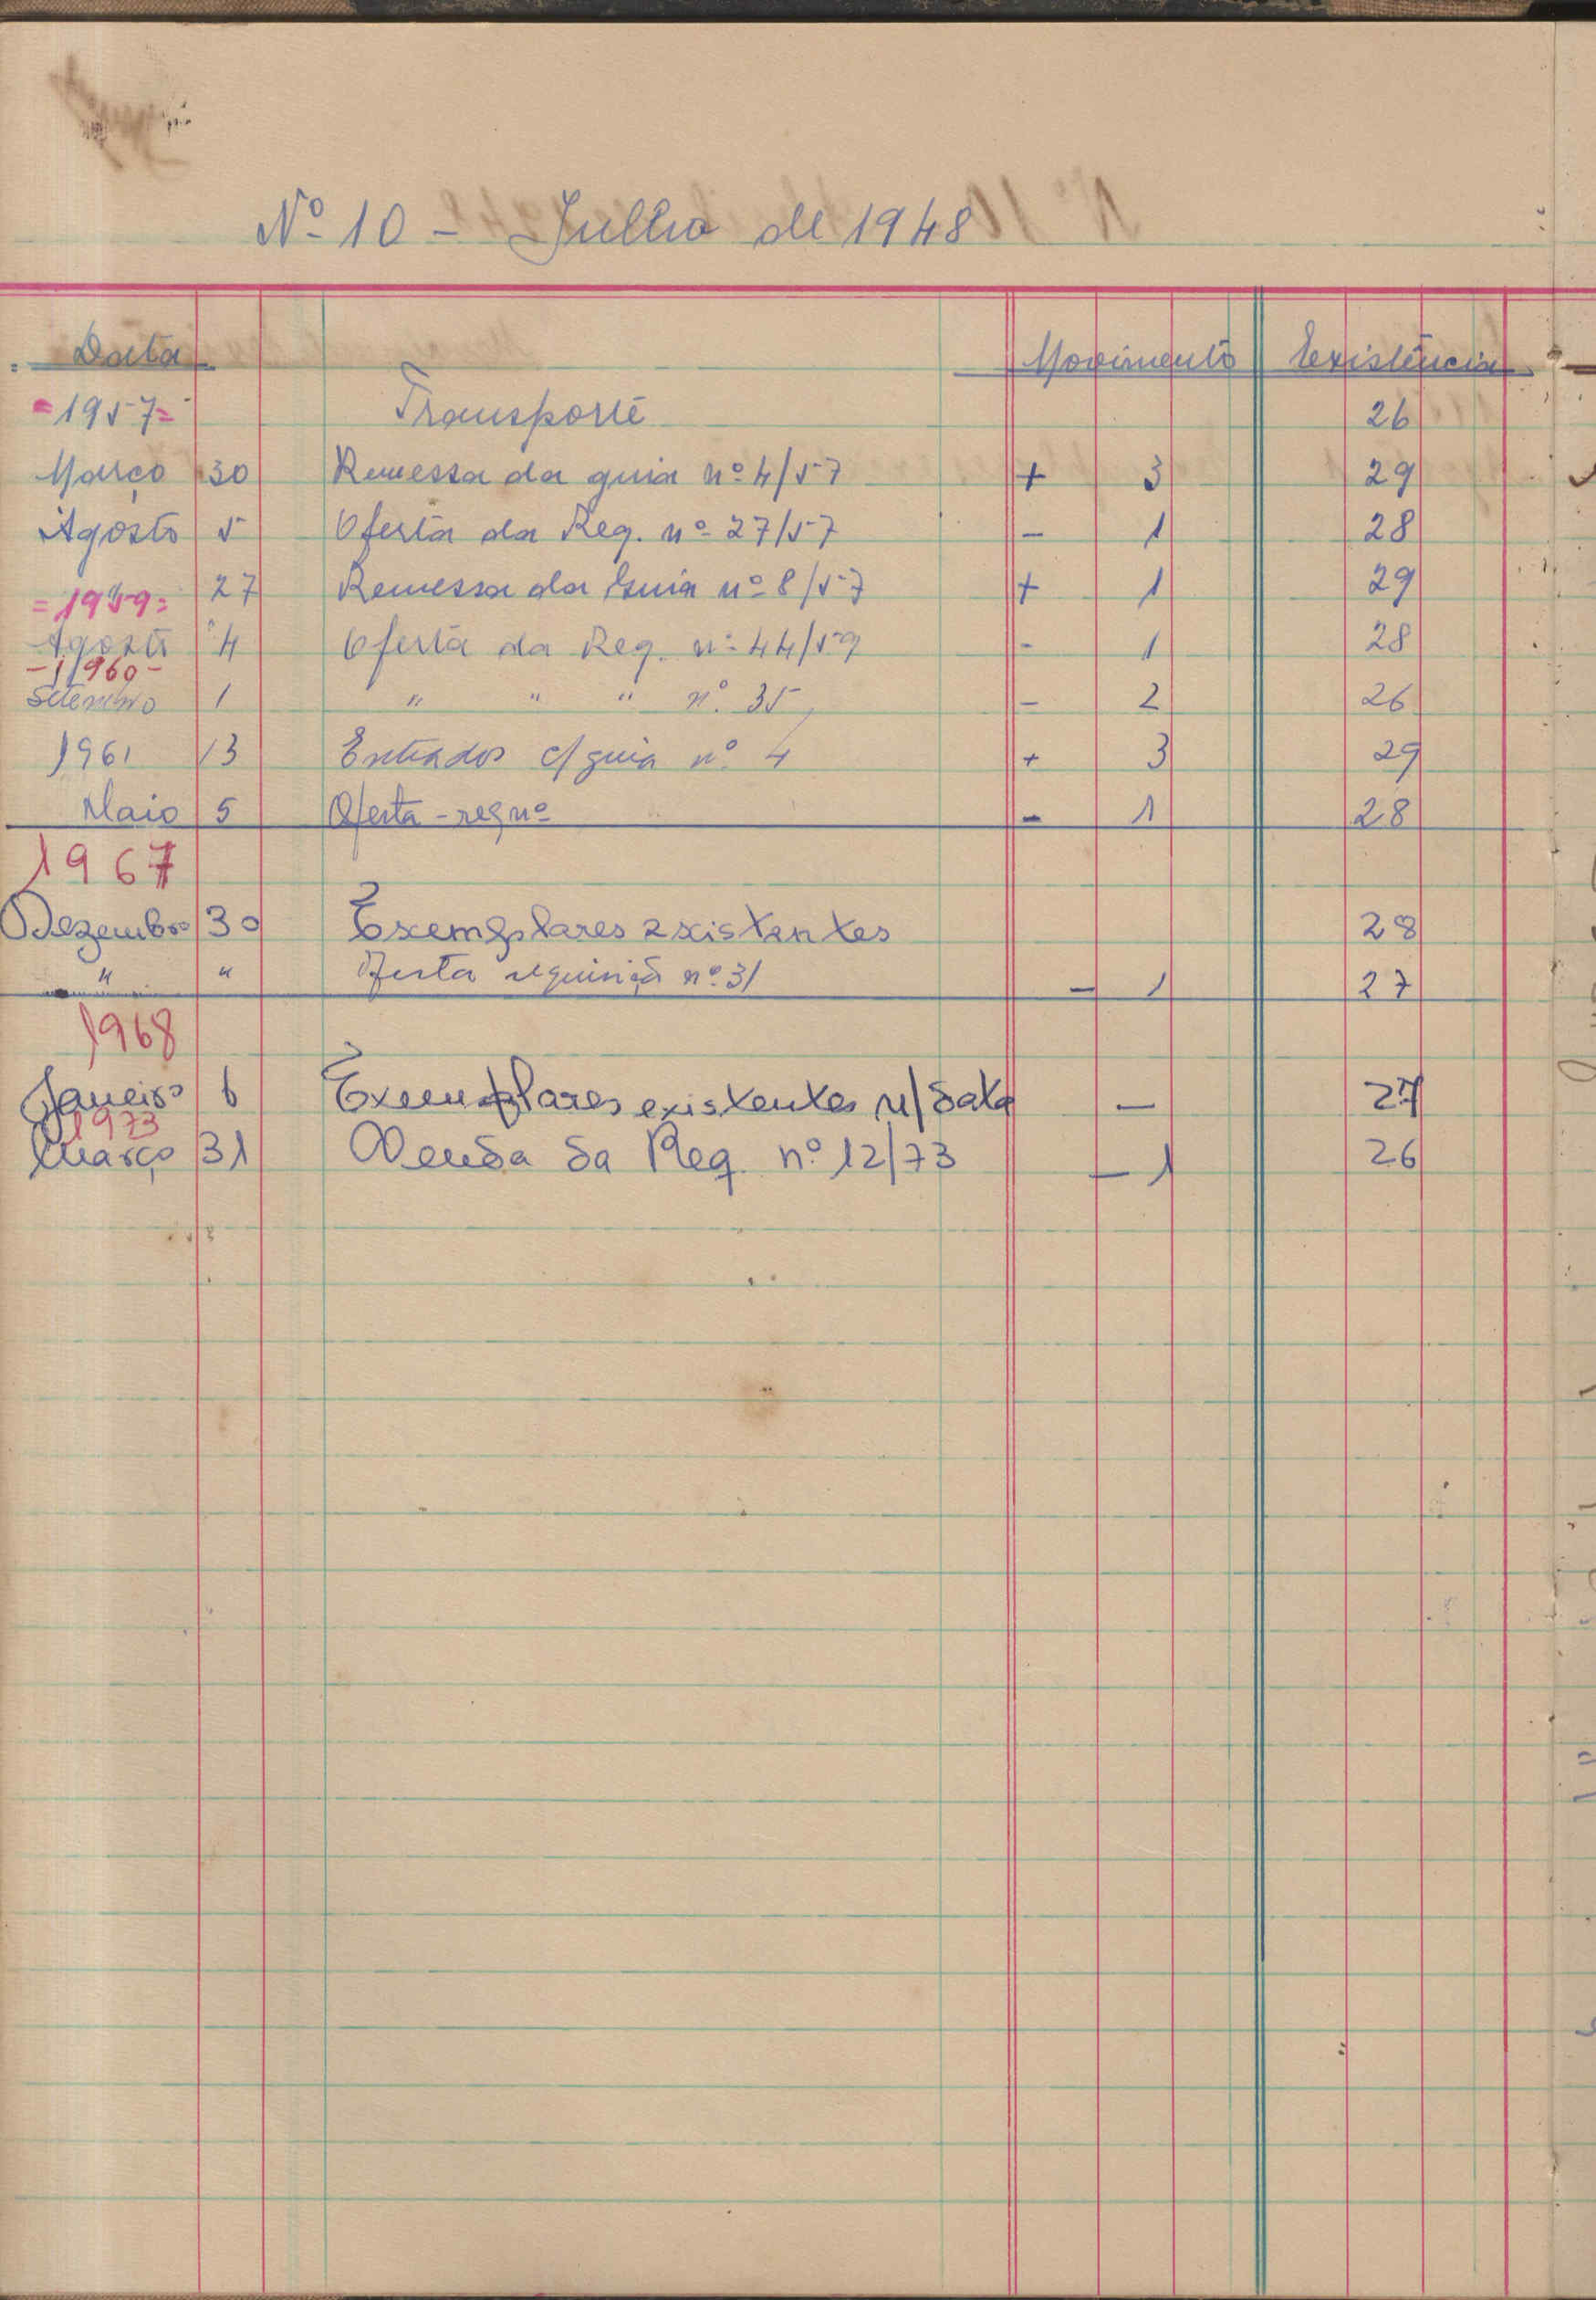 Nº 10 - Julho de 1948
Data Movimento Existência
=1957= Transporte 26
Março 30 Remessa da guia nº 4/57 + 3 29
Agosto 5 Oferta da Req. nº 27/57 - 1 28
27 Remessa da Guia nº 8/57 + 1 29
=1959=
Agosto 4 Oferta da Req. nº 44/59 - 1 28
-1960-
Setembro 1 " " " nº 35 - 2 26
1961 13 Entrados c/ guia nº 4 + 3 29
Maio 5 Oferta - req nº - 1 28
1967
Dezembro 30 Exemplares existentes 28
" " Oferta requisição nº 31 - 1 27
1968
Janeiro 6 Exemplares existentes n/ data - 27
1973
Março 31 Venda da Req. nº 12/73 - 1 26